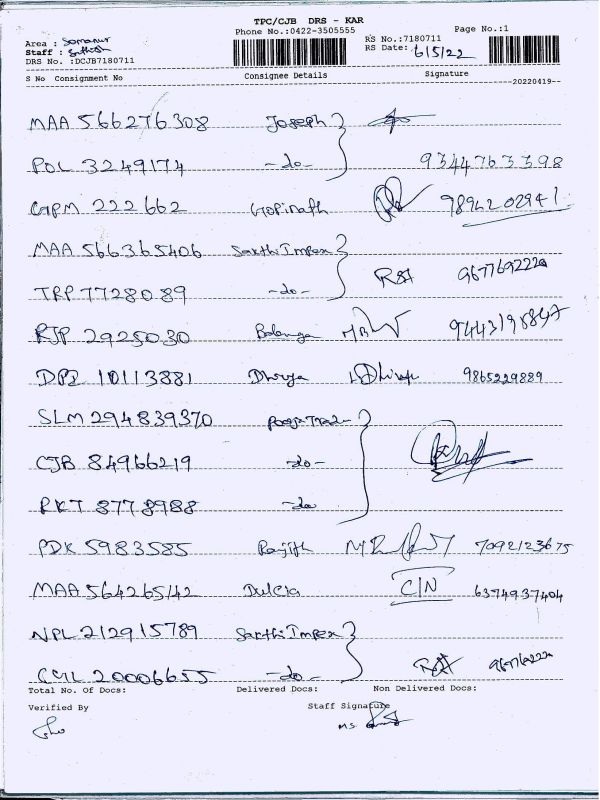 TPC/CJB DRS - KAR
Phone No.:0422-3505555
Page No.:1
Area : Somanur
RS No.:7180711
Staff : Sathish
RS Date: 6/5/22
DRS No. :DCJB7180711
S No Consignment No Consignee Details Signature
--20220419--
MAA 566276308 Joseph
POL 3249174 -do- 9344763398
GPM 222662 Gopinath 9894202941
MAA 566365406 Sakthi Impex
TRP 7728089 -do- 9677692220
RJP 2925030
DPI 10113881 Dhivya 9865229889
SLM 294839370 Pooja Trade
CJB 84966219 -do-
PKT 8778988 -do-
PDK 5983585 Ranjith 7092123675
MAA 564265142 Dulcia C/N 6374937404
NPL 212915789 Sakthi Impex
20006655 -do-
Total No. Of Docs: Delivered Docs: Non Delivered Docs:
Verified By Staff Signature
M.S.